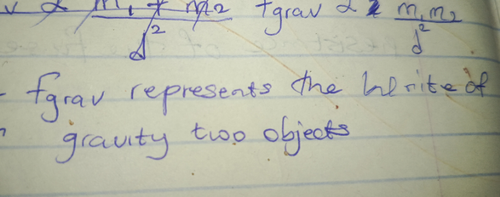 v ∝ m₁ + m₂ / d² fgrav ∝ m₁m₂ / d²
- Fgrav represents the of
gravity two objects